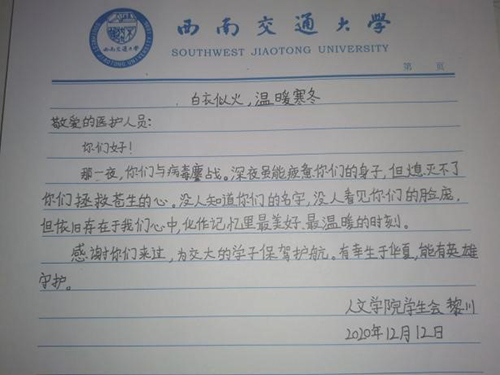 西南交通大学
SOUTHWEST JIAOTONG UNIVERSITY
第 页
白衣似火，温暖寒冬
敬爱的医护人员：
你们好！
那一夜，你们与病毒鏖战。深夜虽能疲惫你们的身子，但熄灭不了
你们拯救苍生的心。没人知道你们的名字，没人看见你们的脸庞，
但依旧存在于我们心中，化作记忆里最美好、最温暖的时刻。
感谢你们来过，为交大的学子保驾护航。有幸生于华夏，能有英雄
守护。
人文学院学生会 黎川
2020年12月12日